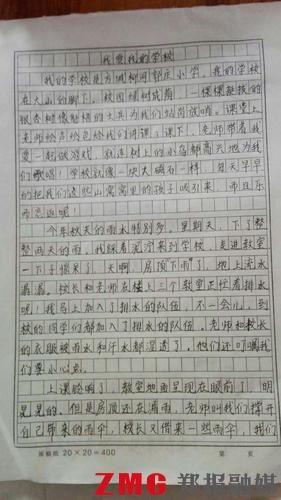 我爱我的学校
我的学校是方城柳河郭庄小学。我的学校
在大山的脚下。校园绿树成荫,一棵棵挺拔的
银杏树像魁梧的士兵为我们站岗放哨。课堂上
老师绘声绘色给我们讲课,课下,老师带着我
爱一起做游戏,就连树上的小鸟都高兴地为我
们歌唱!学校就像一块大磁石一样,每天早早
的把我们这些山窝窝里的孩子吸引来,而且乐
而忘返呢!
今年秋天的雨水特别多。星期天,下了整
整两天的雨。我踩着泥泞来到学校,走进教室
一下子惊呆了,天啊,房顶下"雨"了,地上流水
潺潺。校长和老师在楼上三个教室里忙着排水
呢!我马上加入了排水的队伍,不一会儿,到
校的同学们都加入了排水的队伍。老师和校长
的衣服被雨水和汗水都湿透了,他们还叮嘱我
们要小心点。
上课铃响了,教室地面呈现在眼前了,明
晃晃的。但是房顶还在滴雨,老师叫我们撑开
自己带来的雨伞,校长又借来一些雨伞,我们
原稿纸 20×20=400 第 页
ZMG 郑报融媒